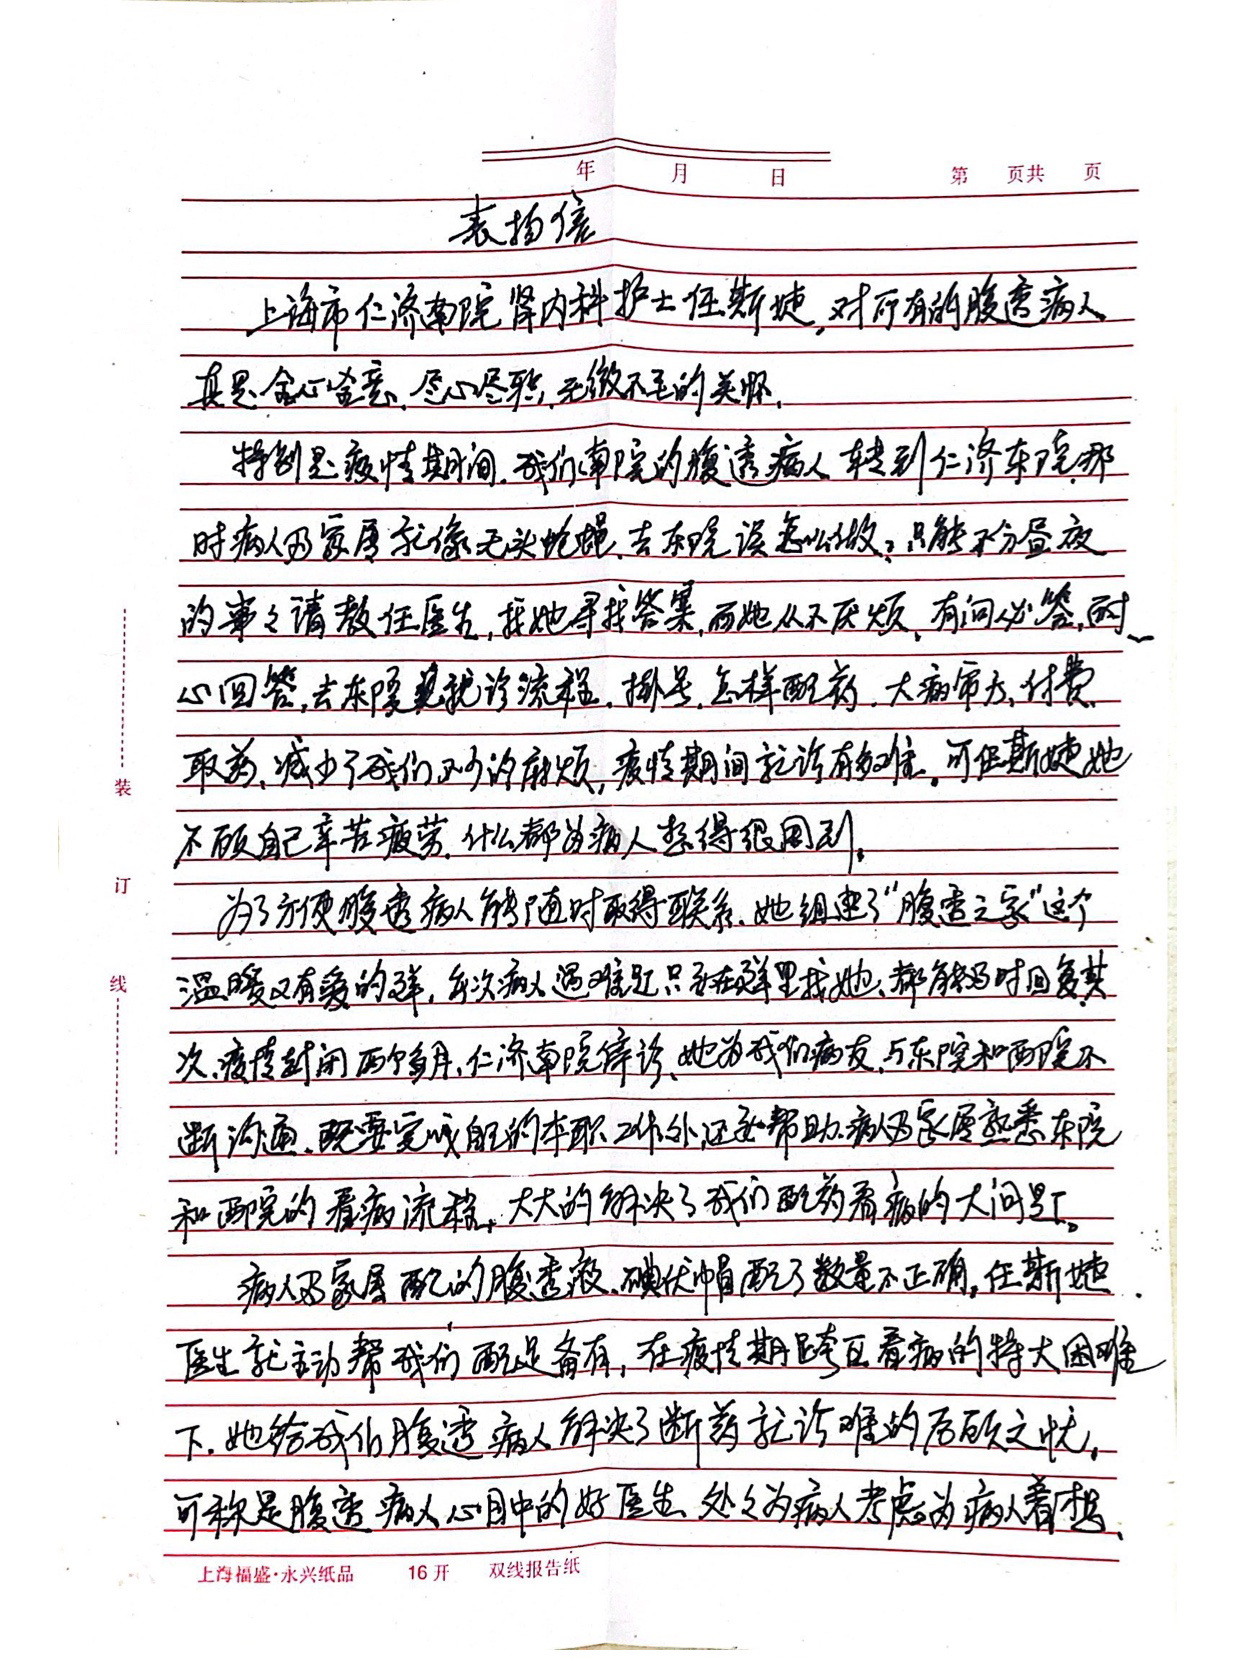 年 月 日 第 页共 页
表扬信
上海市仁济南院肾内科护士任斯婕,对所有的腹透病人
真是全心全意、尽心尽职,无微不至的关怀.
特别是疫情期间.我们南院的腹透病人转到仁济东院,那
时病人及家属就像无头蛇蝇、去东院该怎么做?只能不分昼夜
的事々请教任医生,找她寻找答案,而她从不厌烦,有问必答,耐
心回答,去东院就诊流程.掛号.怎样配药.大病需去、付费
取药、减少了我们不少的麻烦,疫情期间就诊有多难。可任斯婕她
不顾自己辛苦疲劳.什么都为病人想得很周到。
为了方便腹透病人能随时取得联系.她组建了“腹透之家”这个
温暖又有爱的群,每次病人遇难题只要在群里找她、都能及时回复.其
次、疫情封闭两个多月、仁济南院停诊、她为我们病友、与东院和西院不
断沟通、既要完成自己的本职工作外,还要帮助病人及家属熟悉东院
和西院的看病流程,大大的解决了我们配药看病的大问题。
病人及家属配的腹透液、碘伏帽配了数量不正确,任斯婕
医生就主动帮我们配足备有,在疫情期跨区看病的特大困难
下.她给我们腹透病人解决了断药就诊难的后顾之忧,
可称是腹透病人心目中的好医生、处々为病人考虑为病人着想、
装
订
线
上海福盛·永兴纸品 16开 双线报告纸